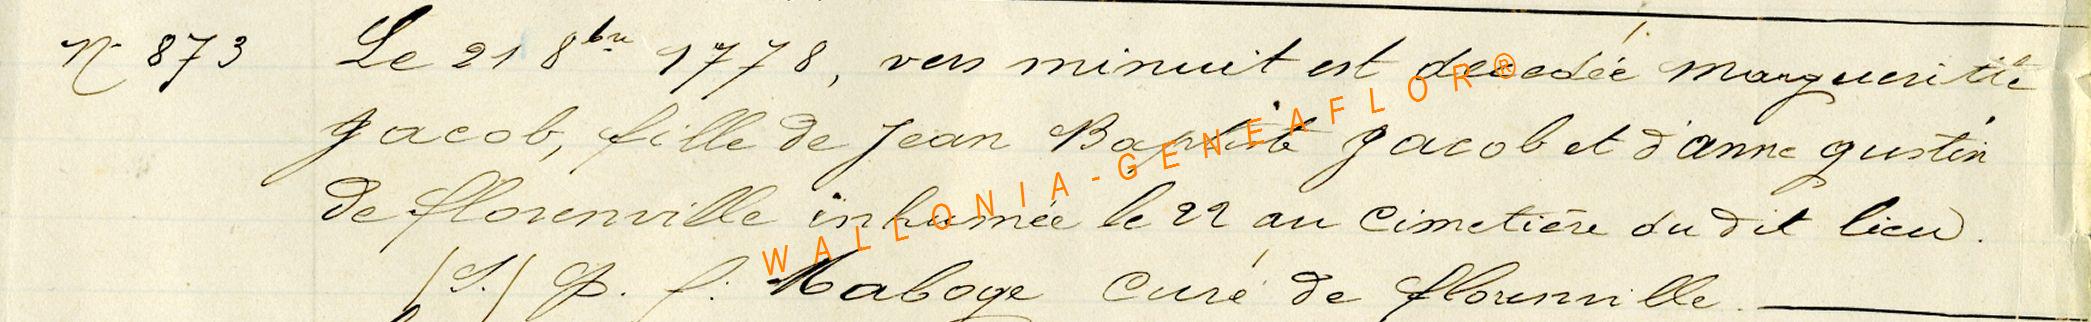 N° 873 Le 21 8bre 1778, vers minuit est decedée Margueritte
Jacob, fille de Jean Baptiste Jacob et d'anne gustin
de florenville inhumée le 22 au Cimetière du dit lieu.
(S.) P. f. Maboge Curé de florenville
WALLONIA-GENEAFLOR®